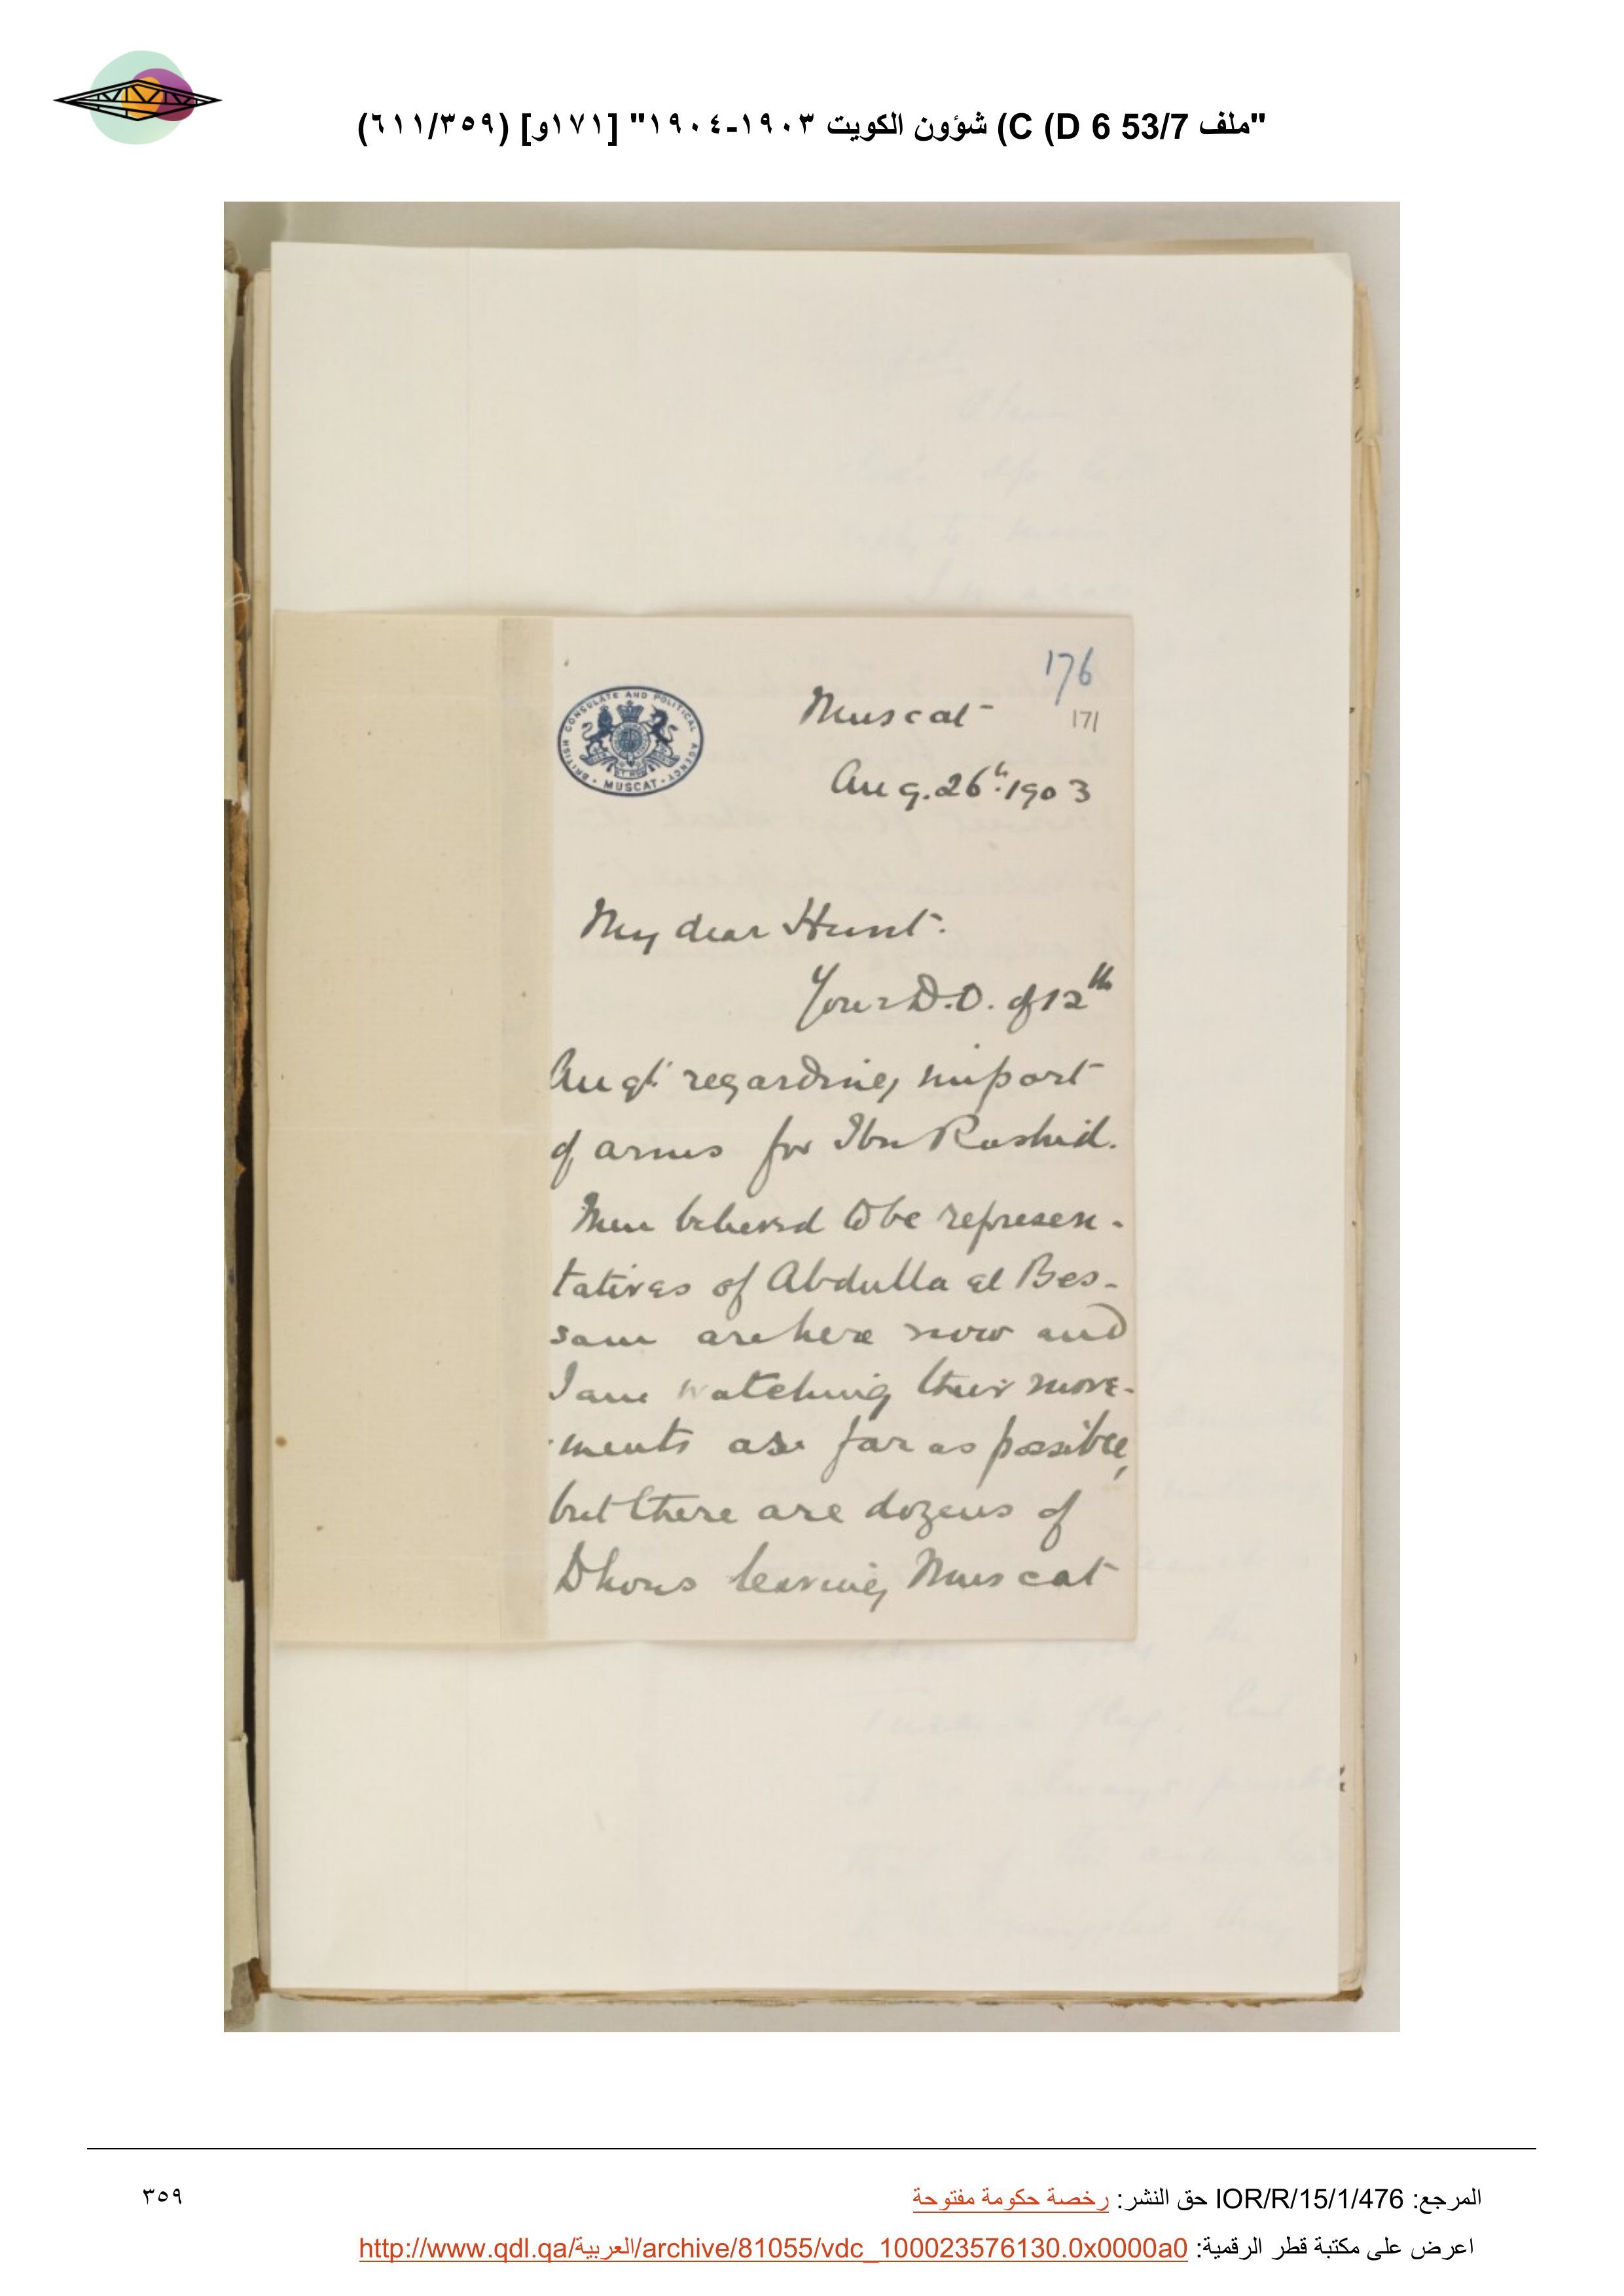 "ملف 53/7 D 6) C) شؤون الكويت ١٩٠٣-١٩٠٤" [١٧١و] (٦١١/٣٥٩)
176
171
BRITISH CONSULATE AND POLITICAL AGENCY
MUSCAT
Muscat
Aug. 26th 1903
My dear Hunt.
Your D.O. of 12th
Augt regarding import
of arms for Ibn Rashid.
Men believed to be represen-
tatives of Abdulla al Bes-
sam are here now and
I am watching their move-
ments as far as possible,
but there are dozens of
Dhows leaving Muscat
المرجع: IOR/R/15/1/476 حق النشر: رخصة حكومة مفتوحة
٣٥٩
اعرض على مكتبة قطر الرقمية: http://www.qdl.qa/العربية/archive/81055/vdc_100023576130.0x0000a0